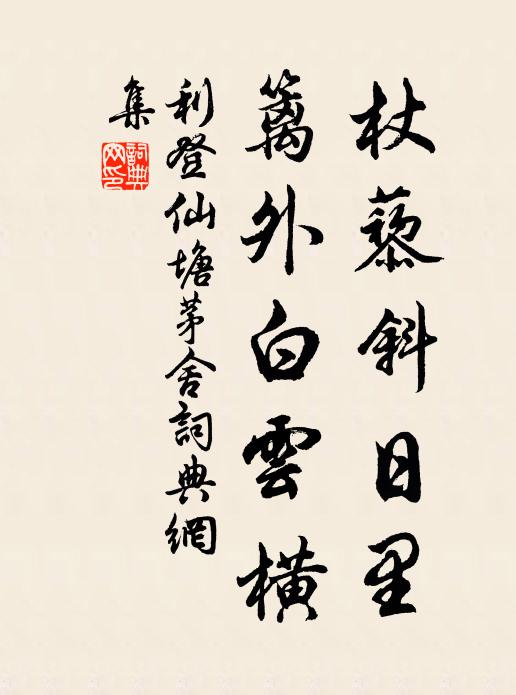 杖藜斜日里
籬外白雲橫
利登仙塘茅舍詞典網
集
詞典網印